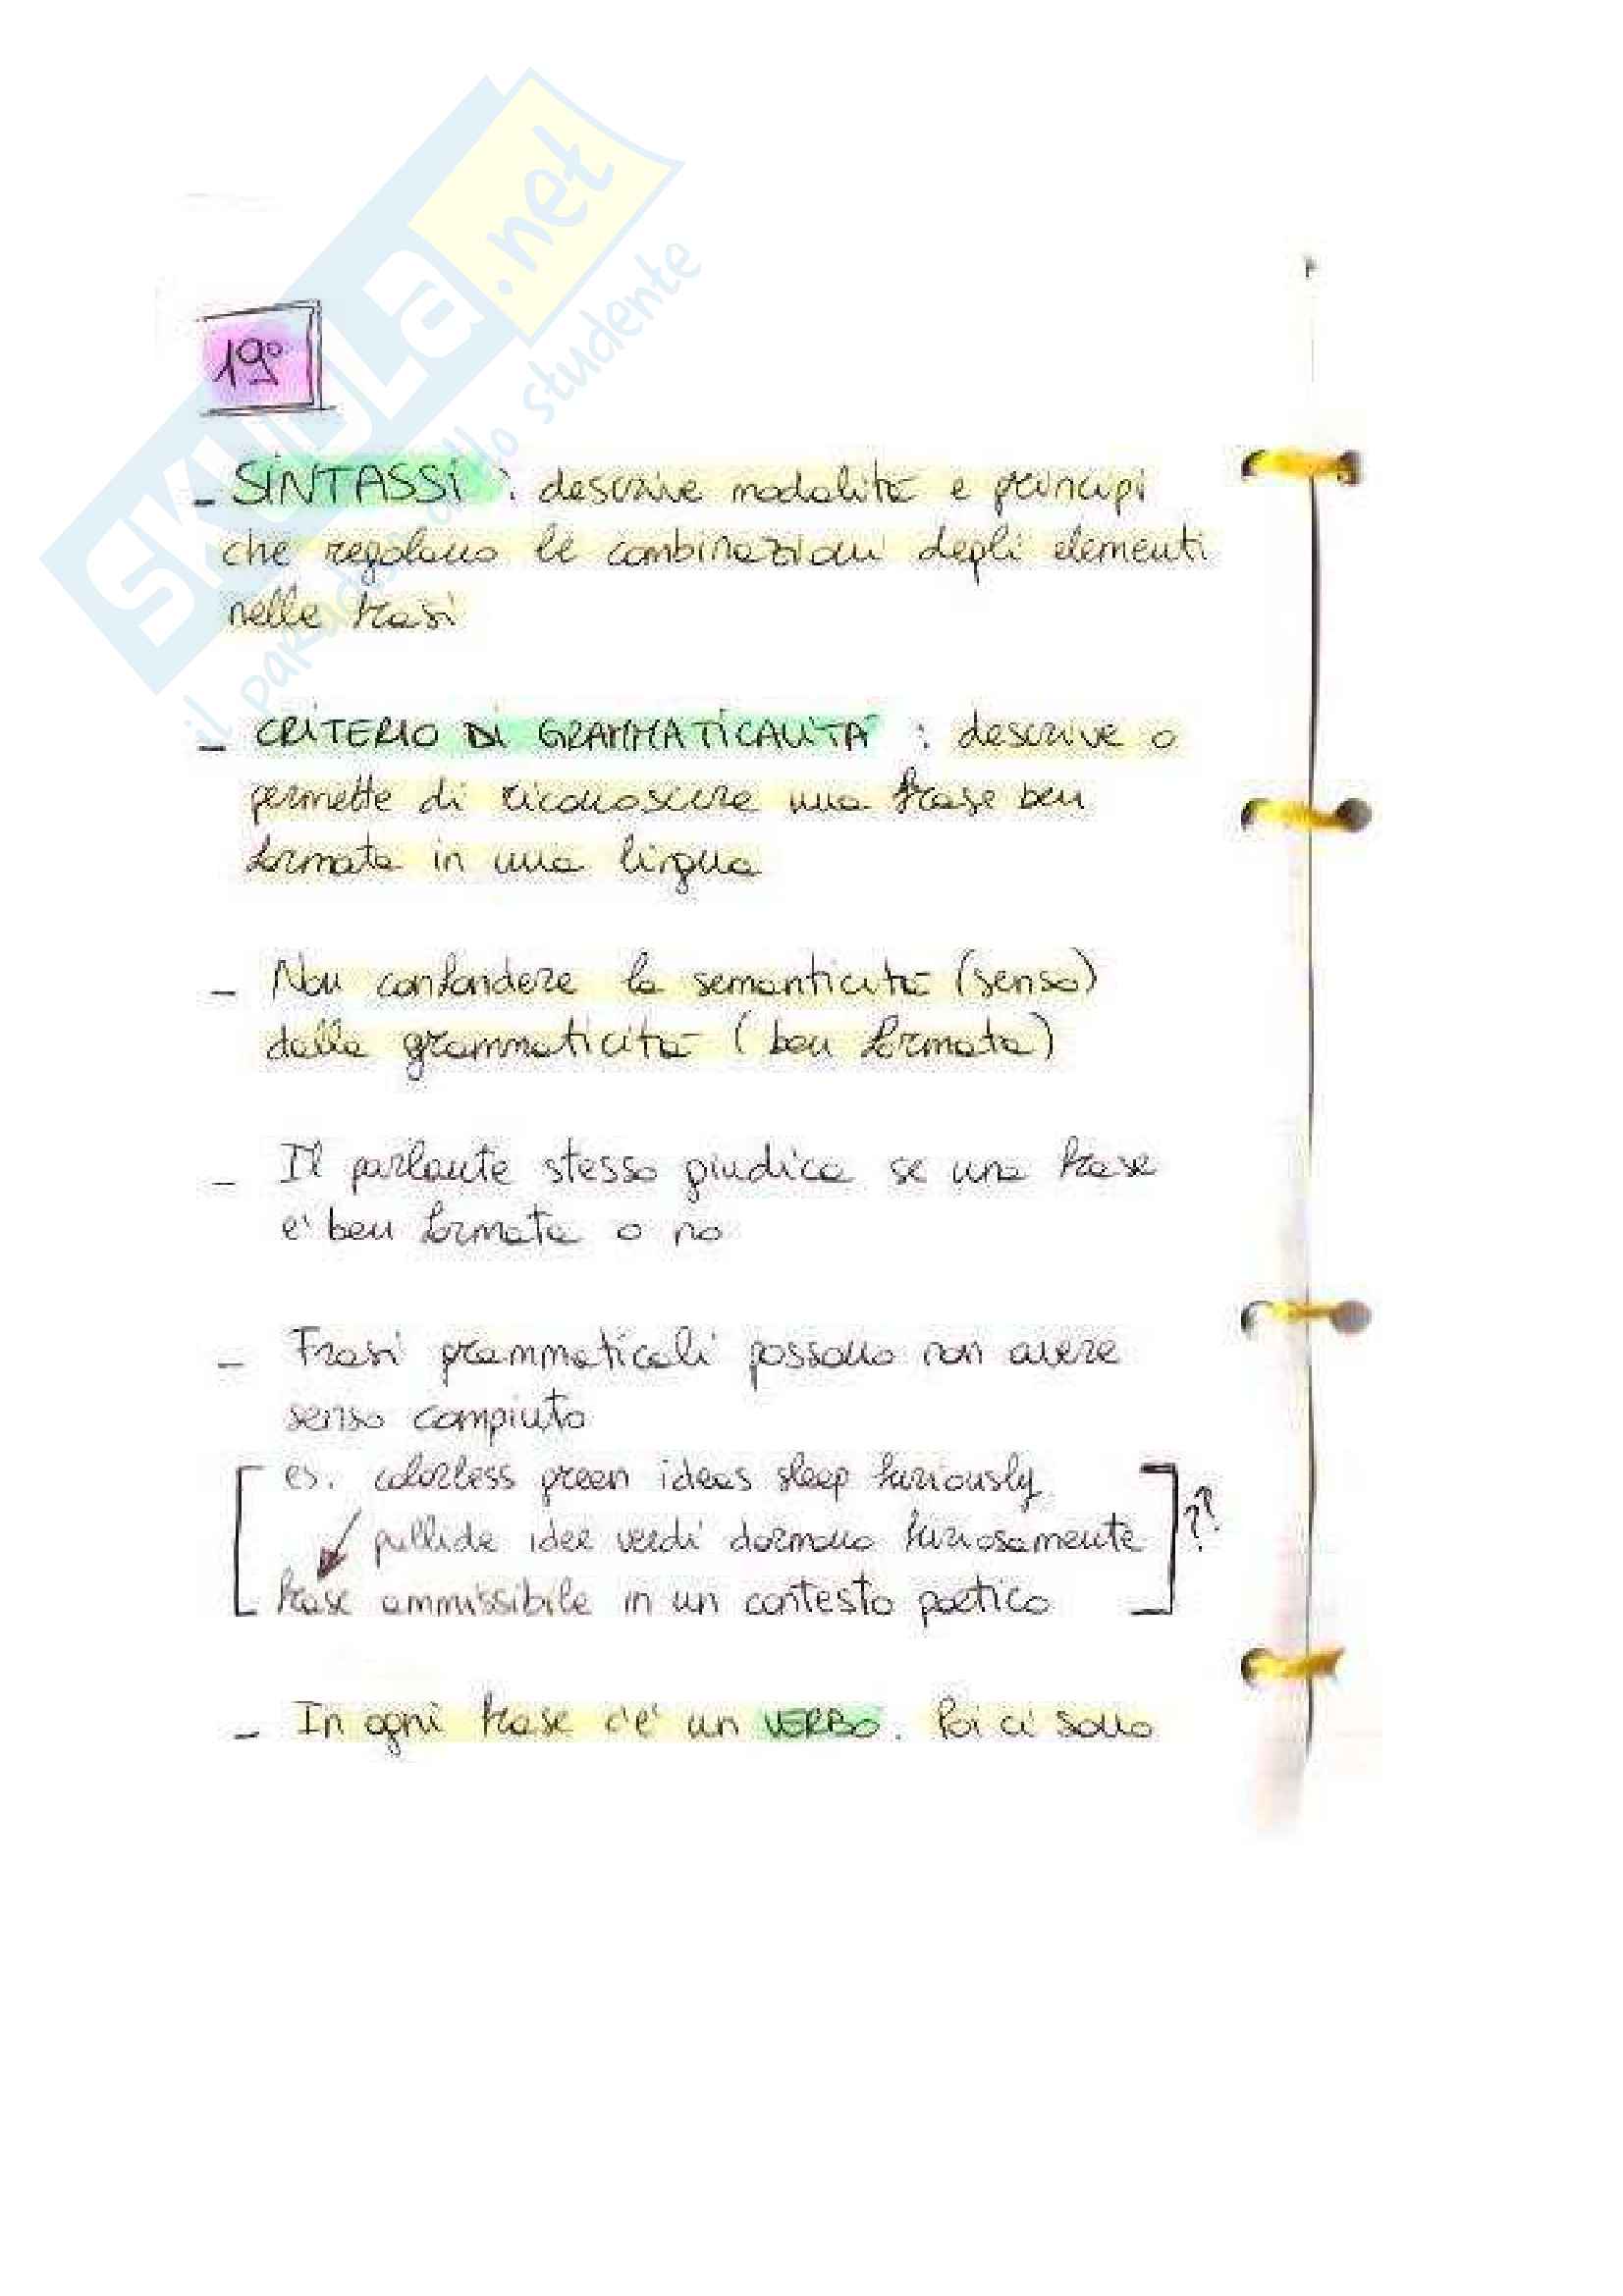 SKUOLA.net
il paradiso dello studente
19°
- SINTASSI : descrive modalità e principi
che regolano le combinazioni degli elementi
nelle frasi
- CRITERIO DI GRAMMATICALITA' : descrive o
permette di riconoscere una frase ben
formata in una lingua
- Non confondere la semanticità (senso)
dalla grammaticità (ben formata)
- Il parlante stesso giudica se una frase
e' ben formata o no
- Frasi grammaticali possono non avere
senso compiuto
es. colorless green ideas sleep furiously
pallide idee verdi dormono furiosamente ??
frase ammissibile in un contesto poetico
- In ogni frase c'e' un VERBO. Poi ci sono